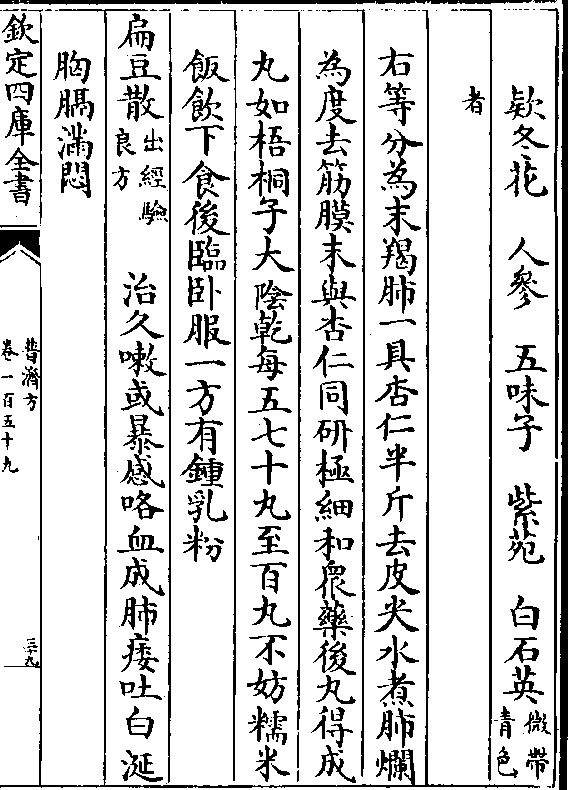 欵冬花　人參　五味子　紫苑　白石英微帶青色
者
右等分為末羯肺一具杏仁半斤去皮尖水煮肺爛
為度去筋膜末與杏仁同研極細和衆藥後丸得成
丸如梧桐子大陰乾每五七十丸至百丸不妨糯米
飯飲下食後臨卧服一方有鍾乳粉
扁豆散出經驗良方　治久嗽或暴感咯血成肺痿吐白涎
胸膈滿悶
欽定四庫全書
普濟方
卷一百五十九